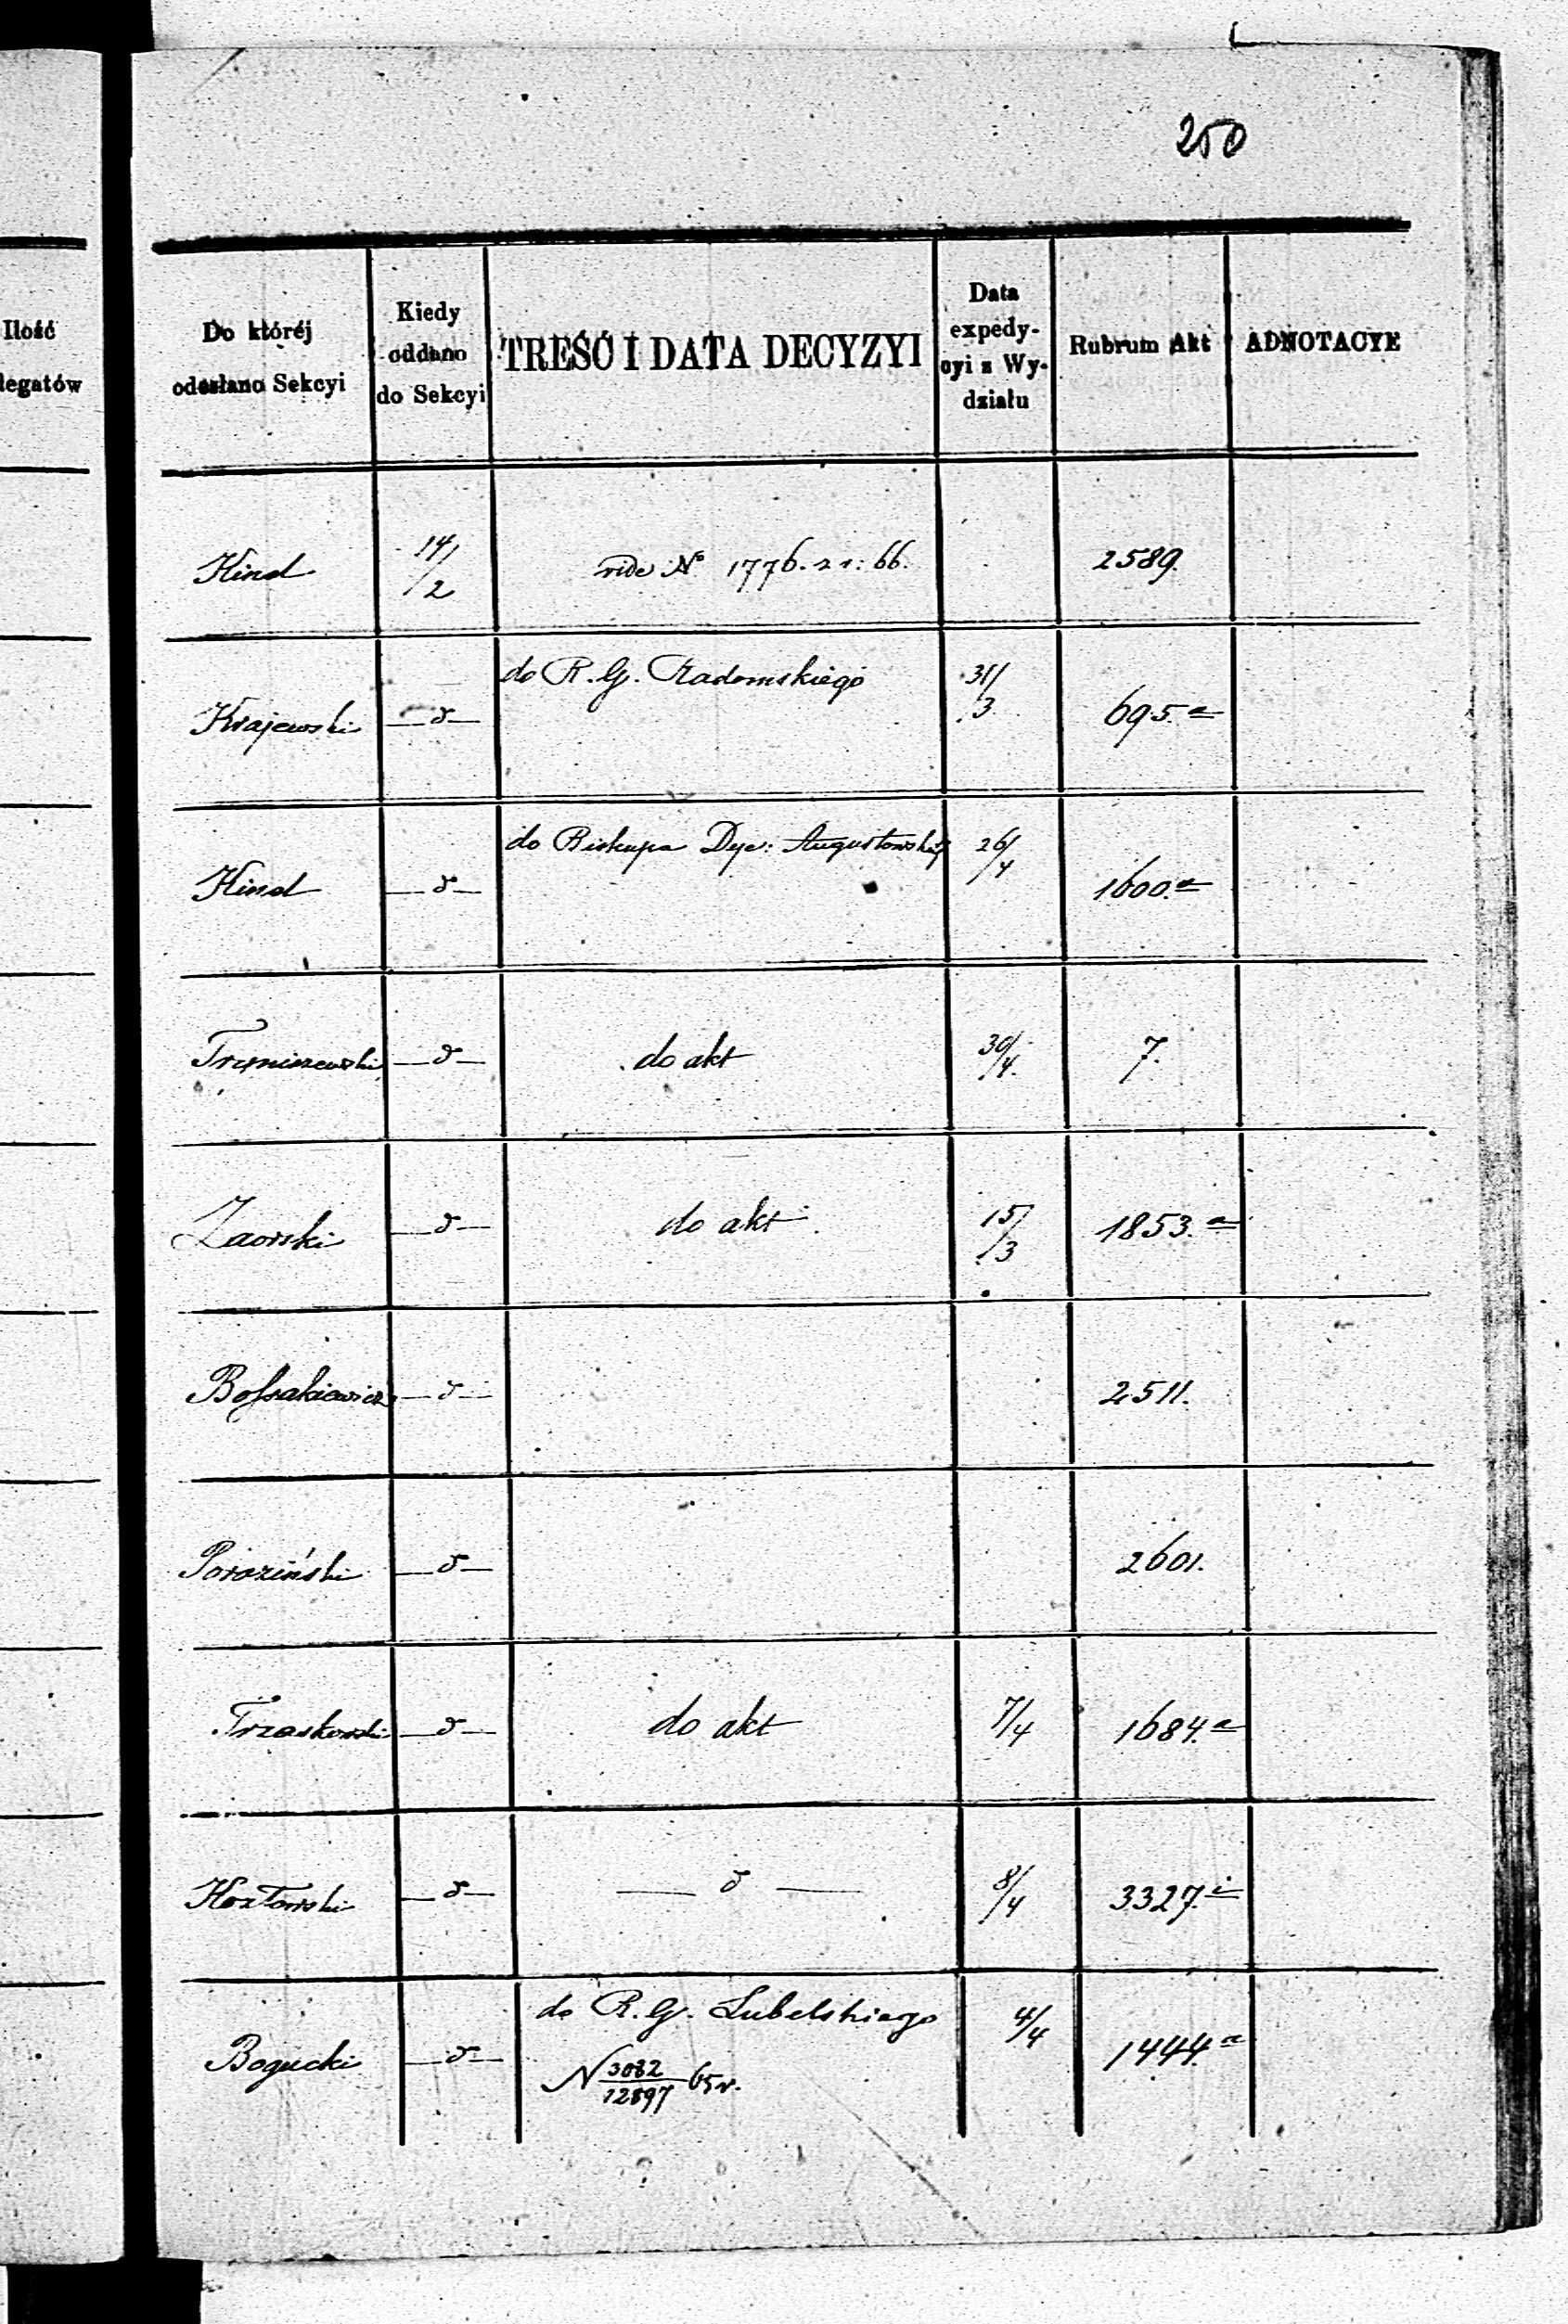 250
Ilość
legatów
Do któréj
odesłano Sekcyi
Kiedy
oddano
do Sekcyi
TREŚĆ I DATA DECYZYI
Data
expedy-
cyi z Wy-
działu
Rubrum Akt
ADNOTACYE
Kind 14/2 vide № 1776. 21: 66. 2589.
Krajewski —d— do R. G. Radomskiego 31/3 695.a
Kind —d— do Biskupa Dye: Augustowskiej 26/4 1600.a
—d— do akt 30/4. 7.
Zaorski —d— do akt 15/3 1853.a
Bossakiewicz —d— 2511.
Poroziński —d— 2601.
Trzaskowski —d— do akt 7/4 1684.a
Kozłowski —d— — d — 8/4 3327.i
Bogucki —d— do R. G. Lubelskiego 4/4 1444.a
N 3082/12897 65 r.